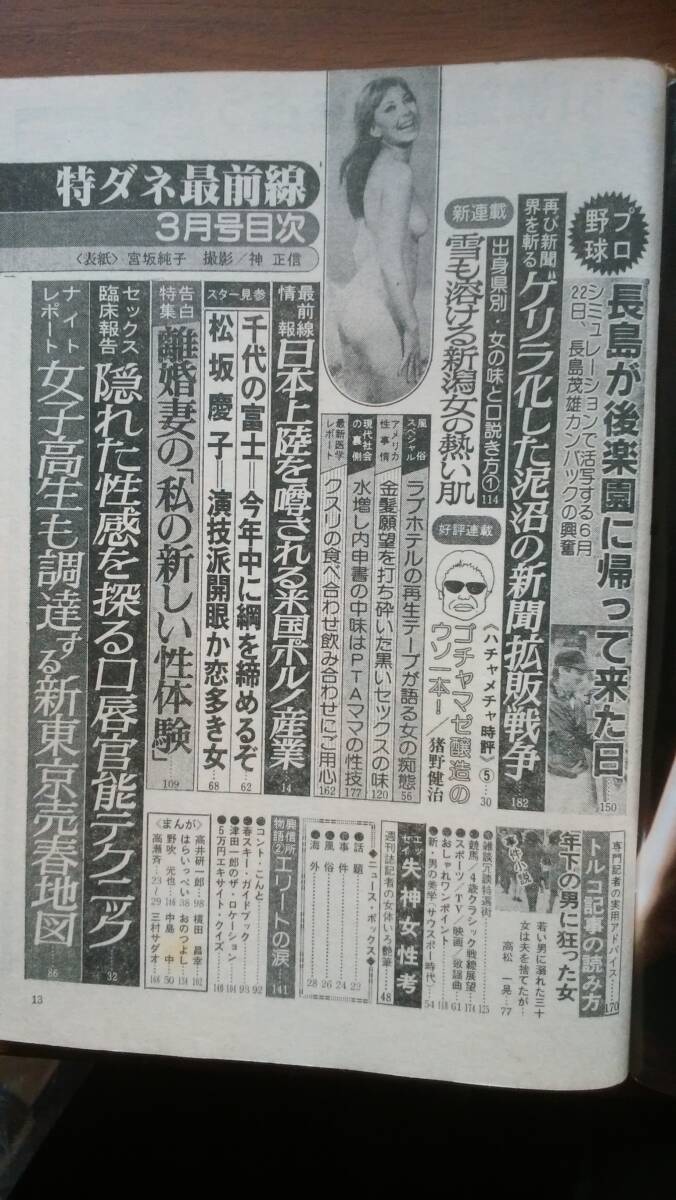 特ダネ最前線
3月号目次
〈表紙〉宮坂純子 撮影／神 正信
プロ野球
長島が後楽園に帰って来た日
シミュレーションで活写する6月
22日、長島茂雄カンバックの興奮
150
再び新聞界を斬る
“ゲリラ化した泥沼の新聞拡販戦争
182
新連載
出身県別・女の味と口説き方①
114
雪も溶ける新潟女の熱い肌
好評連載
〈ハチャメチャ時評〉⑤
30
ゴチャマゼ醸造の
ウソ一本！／猪野健治
風俗スペシャル
ラブホテルの再生テープが語る女の痴態
56
アメリカ性事情
金髪願望を打ち砕いた黒いセックスの味
120
現代社会の裏側
水増し内申書の中味はPTAママの性技
177
最新医学レポート
クスリの食べ合わせ飲み合わせにご用心
162
最前線情報
日本上陸を噂される米国ポルノ産業
14
スター見参
千代の富士＝今年中に綱を締めるぞ
62
松坂慶子＝演技派開眼か恋多き女
68
告白特集
離婚妻の「私の新しい性体験」
109
セックス臨床報告
隠れた性感を探る口唇官能テクニック
32
ナイトレポート
女子高生も調達する新東京売春地図
86
専門記者の実用アドバイス
トルコ記事の読み方
170
年下の男に狂った女
若い男に溺れた三十
女は夫を捨てたが…
高松 一晃…77
雑談冗談特選街 125
競馬／4歳クラシック戦線展望 174
スポーツ／TV／映画／歌謡曲 61
おしゃれワンポイント 118
新・男の美学・サウスポー時代 54
エッセイ
失神女性考
週刊誌記者の女体いろ艶筆
48
◆ニュース・ボックス◆
話題 22
事件 24
風俗 26
海外 28
興信所物語②
エリートの涙
141
コント・こんと 92
春スキー・ガイドブック 93
津田一郎のザ・ロケーション 104
5万円エキサイト・クイズ 140
〈まんが〉
高井研一郎…98
横田 昌幸 102
はらいっぺい 38
おのつよし 134
野吹 光也 146
中島 中 50
高瀬斉…23 29
三村サダオ…166
13